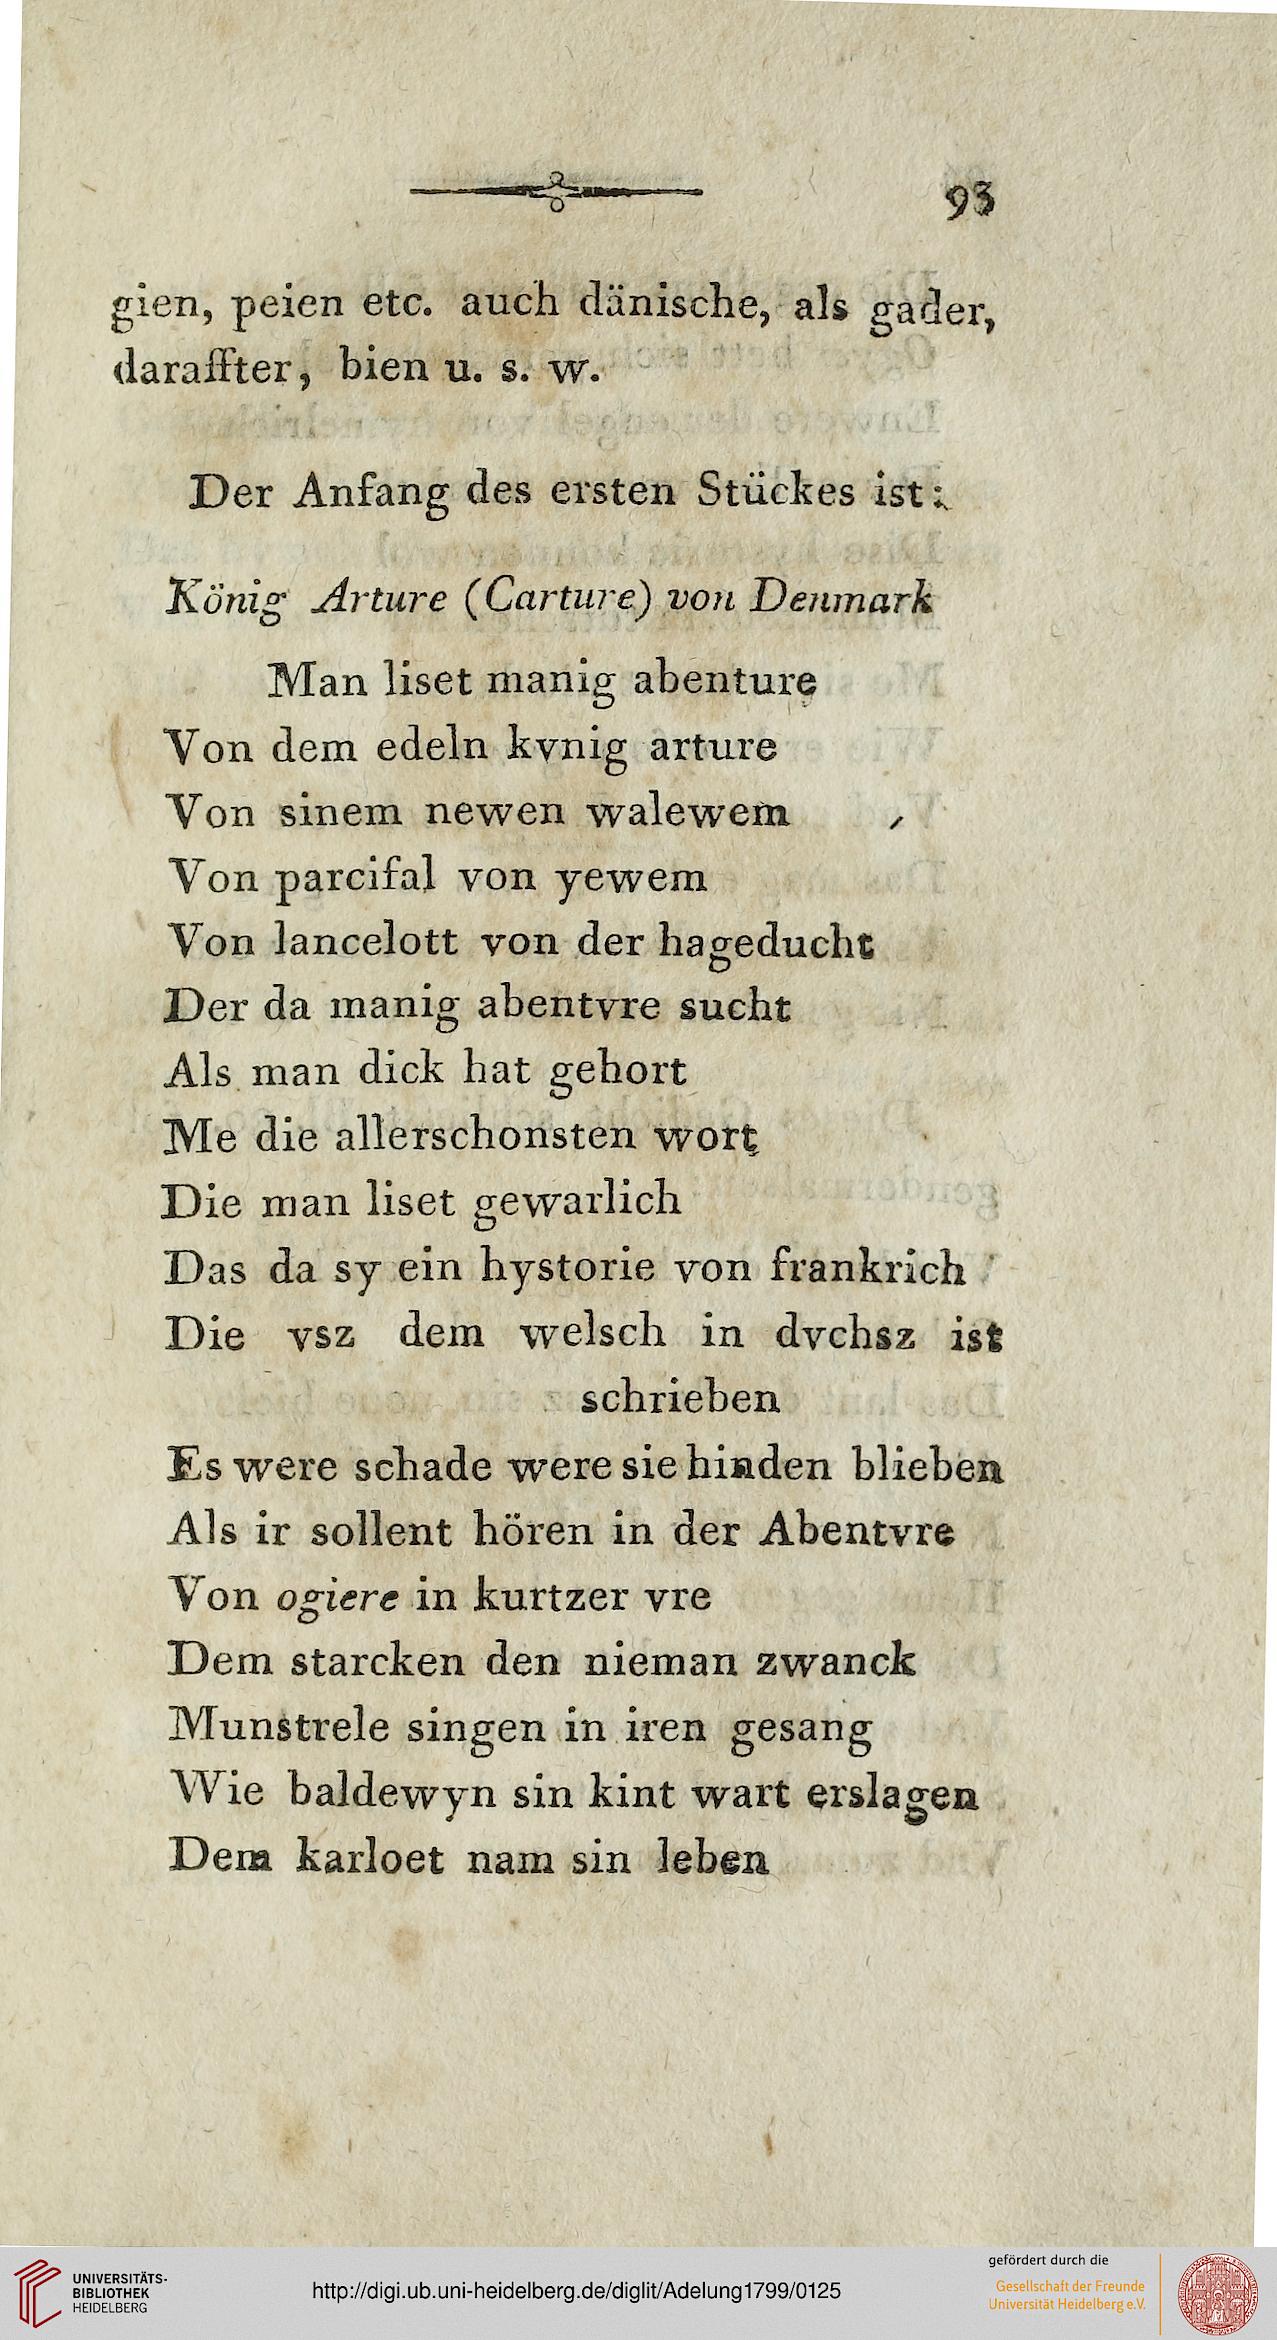 93
gien, peien etc. auch dänische, als gader,
daraffter, bien u. s. w.
Der Anfang des ersten Stückes ist:
König Arture (Carture) von Denmark
Man liset manig abenture
Von dem edeln kvnig arture
Von sinem newen walewem
Von parcifal von yewem
Von lancelott von der hageducht
Der da manig abentvre sucht
Als man dick hat gehort
Me die allerschonsten wort
Die man liset gewarlich
Das da sy ein hystorie von frankrich
Die vsz dem welsch in dvchsz ist
schrieben
Es were schade were sie hinden blieben
Als ir sollent hören in der Abentvre
Von ogiere in kurtzer vre
Dem starcken den nieman zwanck
Munstrele singen in iren gesang
Wie baldewyn sin kint wart erslagen
Dem karloet nam sin leben
UNIVERSITÄTS-
BIBLIOTHEK
HEIDELBERG
http://digi.ub.uni-heidelberg.de/diglit/Adelung1799/0125
gefördert durch die
Gesellschaft der Freunde
Universität Heidelberg e.V.